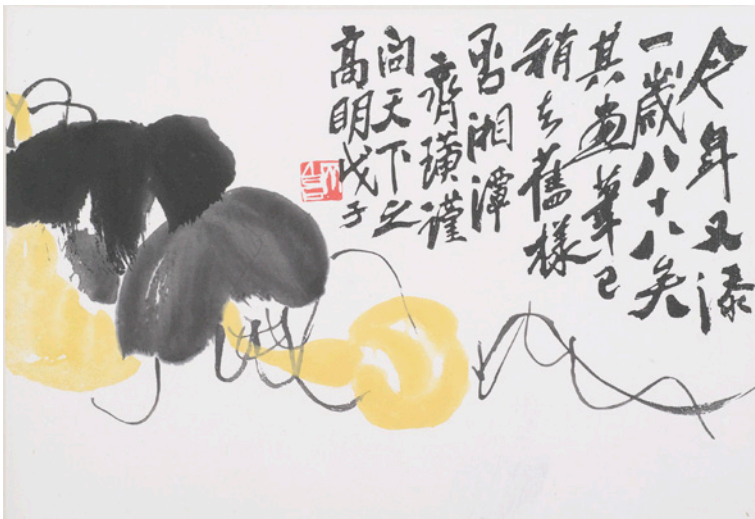 今年又添
一歲八十八矣
其画筆已
稍去舊樣
否湘潭
齊璜謹
問天下之
高明戊子